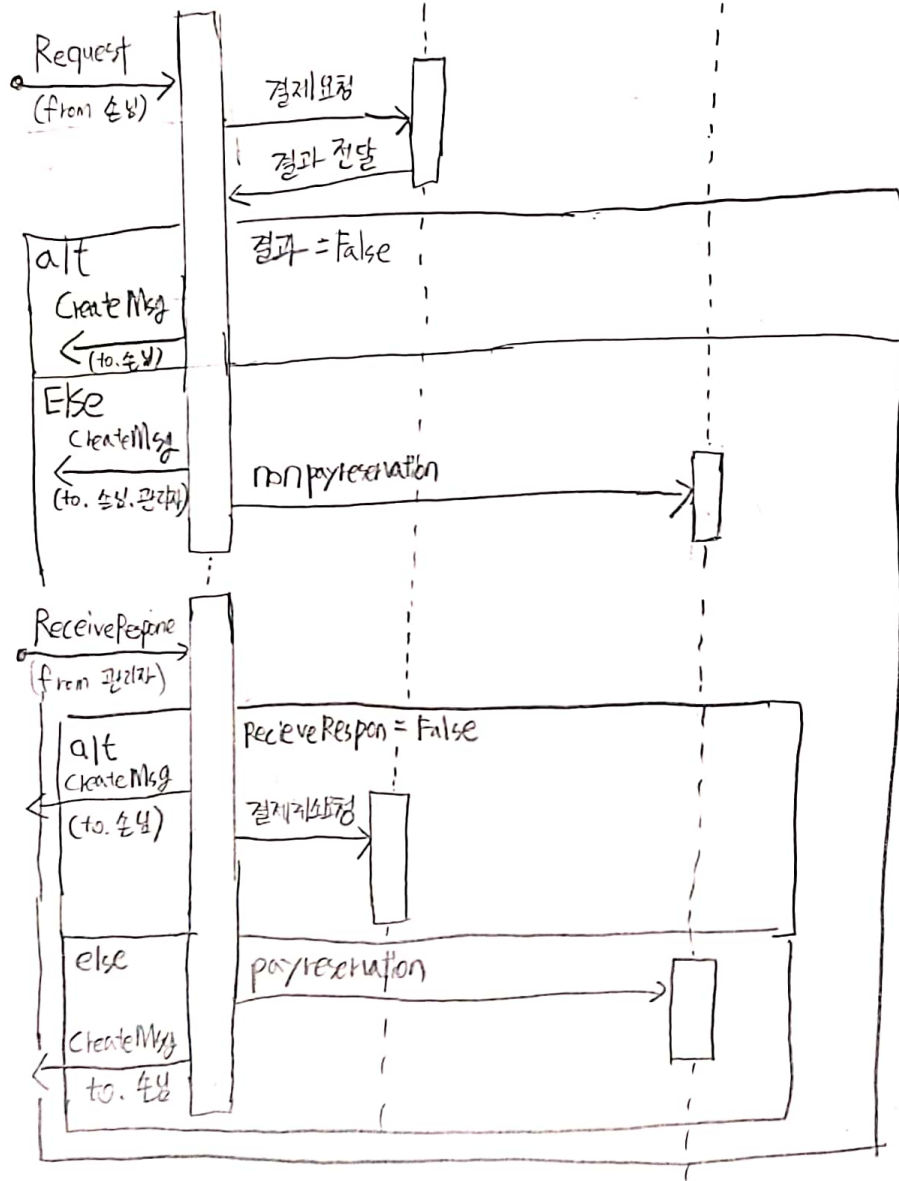 Request
(from 손님)
결제요청
결과 전달
alt
결과 = False
CreateMsg
(to. 손님)
Else
CreateMsg
(to. 손님, 관리자)
nonpayreservation
ReceiveRespone
(from 관리자)
alt
RecieveRespon = False
CreateMsg
(to. 손님)
결제취소요청
else
payreservation
CreateMsg
to. 손님